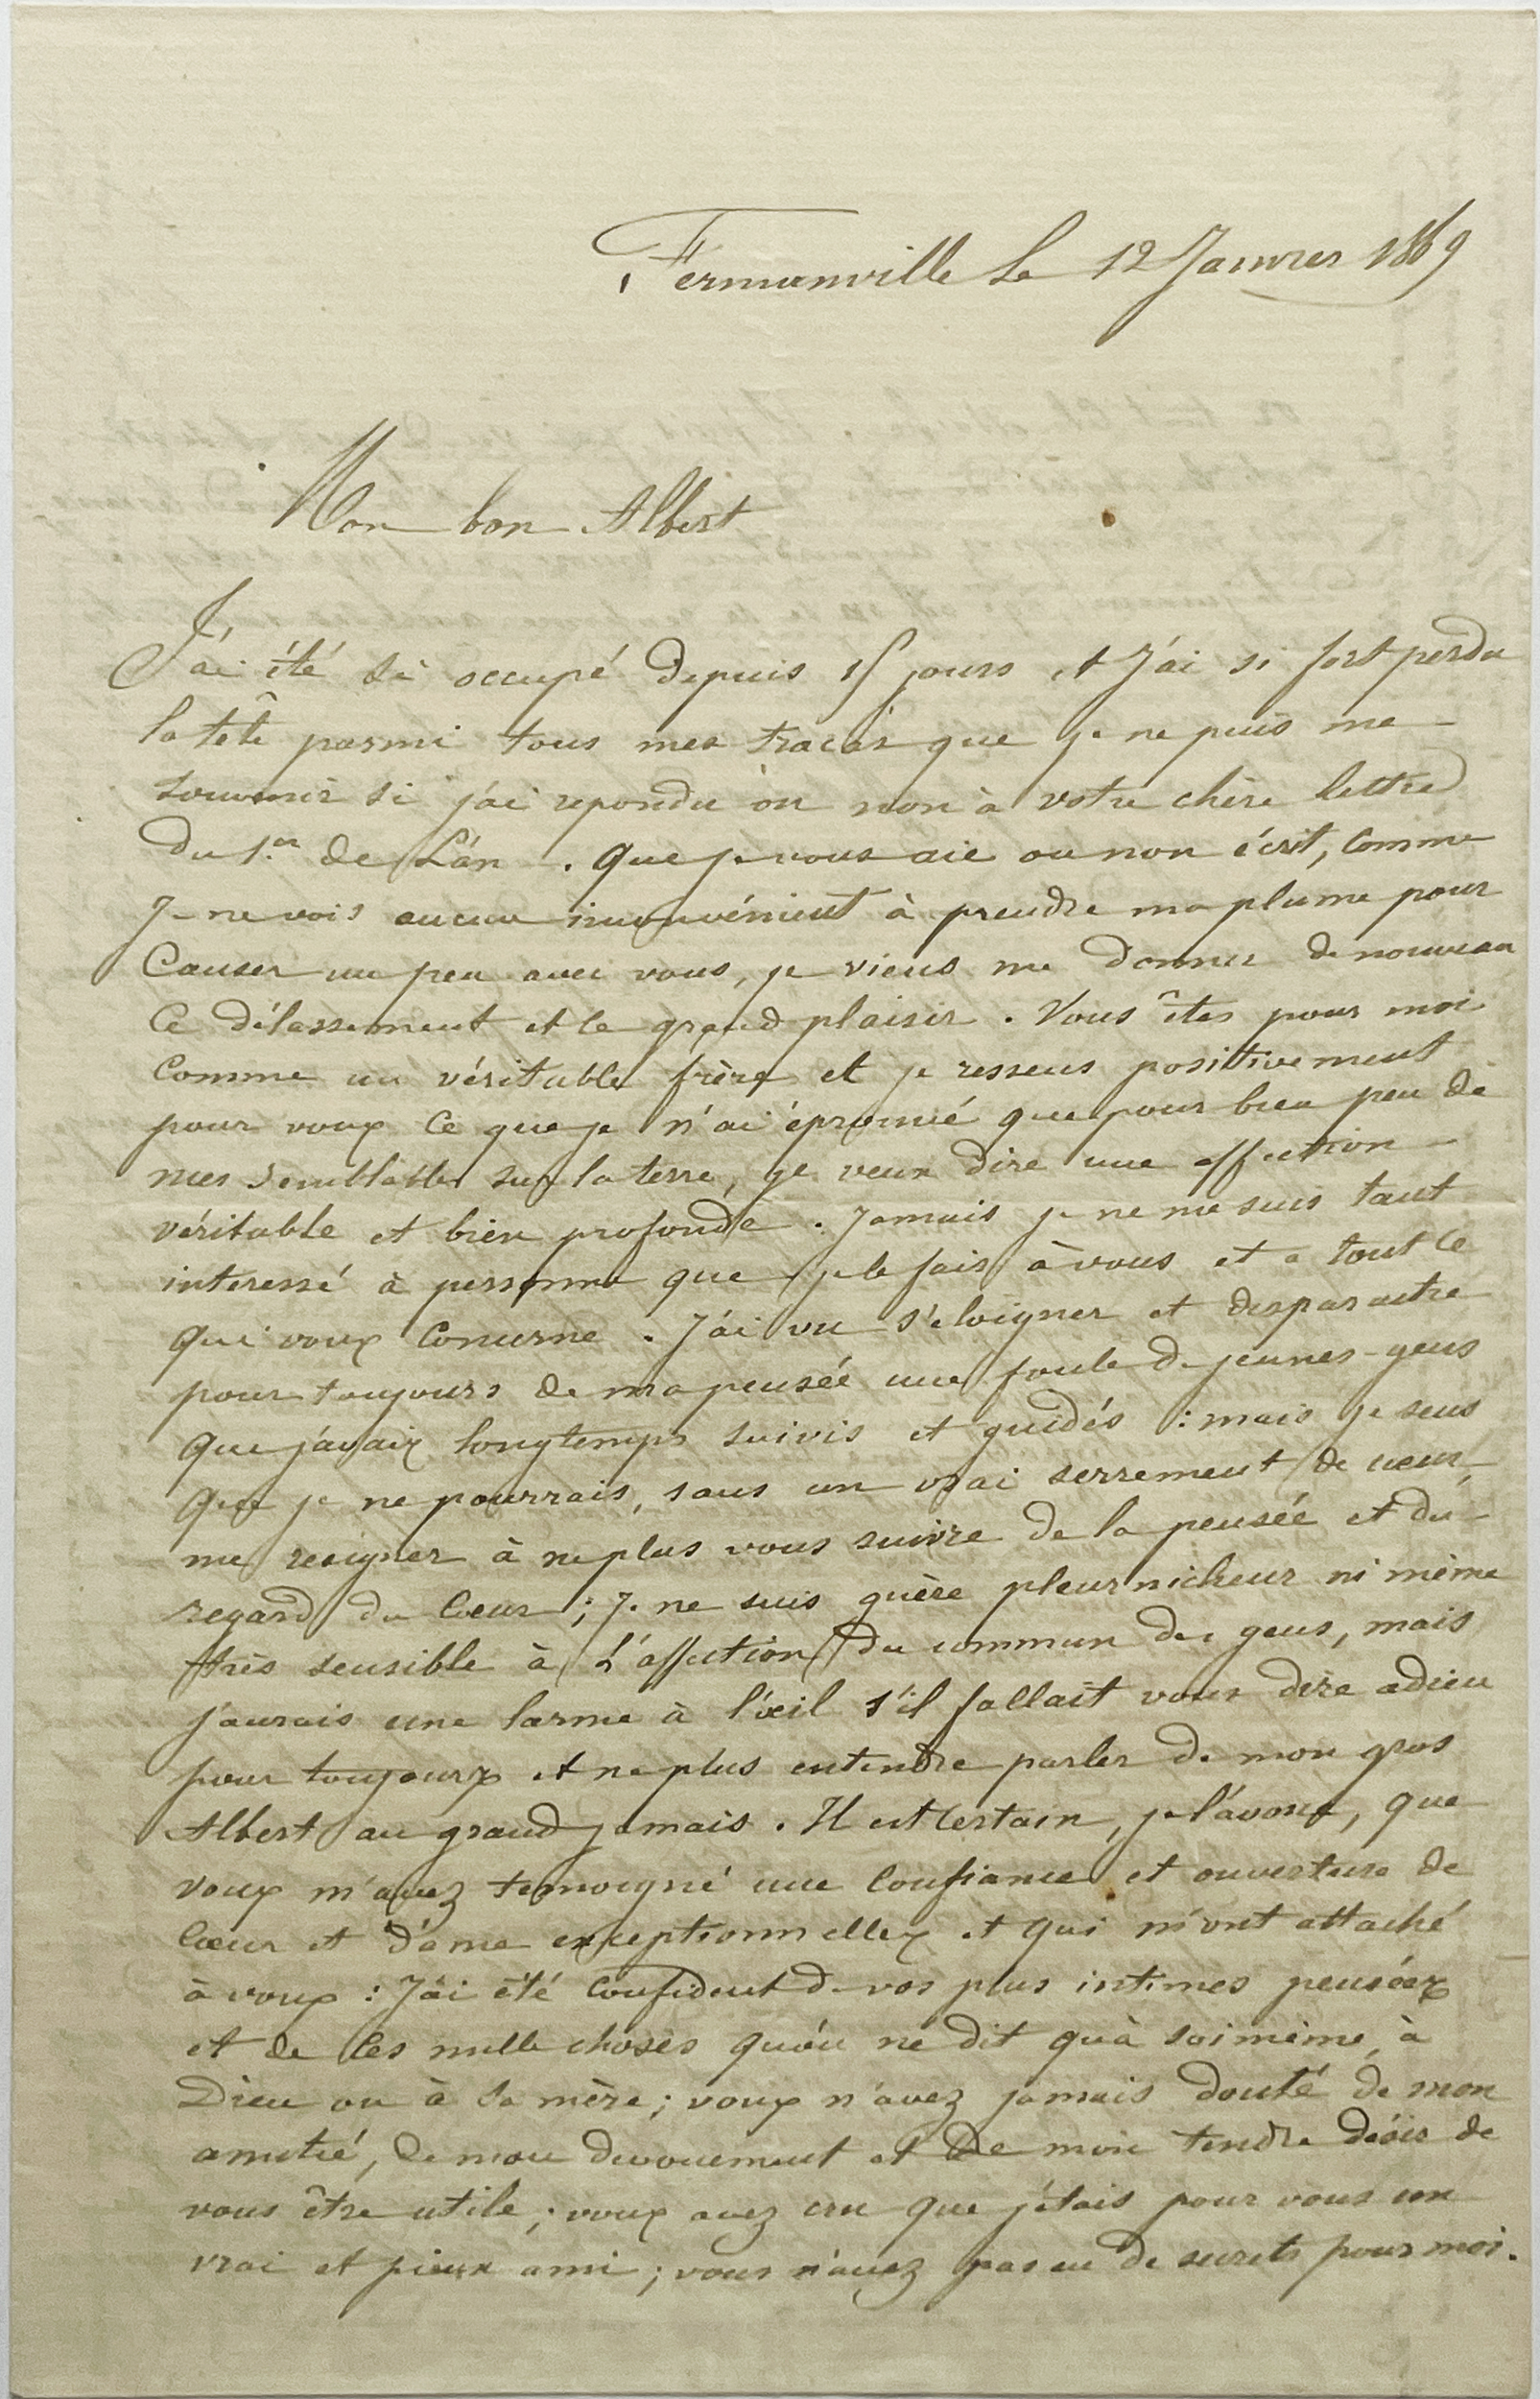 Fermanville le 12 Janvier 1869
Mon bon Albert
J'ai été si occupé depuis 15 jours et J'ai si fort perdu
la tête parmi tous mes tracas que je ne puis me
souvenir si j'ai repondu ou non à votre chère lettre
du 1.er de L'an . Que je vous aie ou non écrit, comme
Je ne vois aucun inconvénient à prendre ma plume pour
Causer un peu avec vous, je viens me donner de nouveau
ce délassement et le grand plaisir . Vous êtes pour moi
comme un véritable frère et je ressens positivement
pour vous ce que je n'ai éprouvé que pour bien peu de
mes semblables sur la terre, je veux dire une affection
véritable et bien profonde . Jamais je ne me suis tant
interessé à personne que je le fais à vous et a tout ce
qui vous concerne . J'ai vu s'eloigner et disparaitre
pour toujours de ma pensée une foule de jeunes-gens
que j'avais longtemps suivis et guidés : mais je sens
que je ne pourrais, sans un vrai serrement de cœur,
me resigner à ne plus vous suivre de la pensée et du
regard du Cœur ; Je ne suis guère pleurnicheur ni même
très sensible à L'affection du commun des gens, mais
j'aurais une larme à l'œil s'il fallait vous dire adieu
pour toujours et ne plus entendre parler de mon gros
Albert au grand jamais . Il est certain, je l'avoue, que
vous m'avez temoigné une confiance et ouverture de
Cœur et d'âme exceptionnelles et qui m'ont attaché
à vous : J'ai été confident de vos plus intimes pensées
et de ces mille choses qu'on ne dit qu'à soi même, à
Dieu ou à sa mère ; vous n'avez jamais douté de mon
amitié, de mon devouement et de mon tendre désir de
vous être utile ; vous avez cru que j'étais pour vous un
vrai et pieux ami ; vous n'avez pas eu de secrets pour moi.